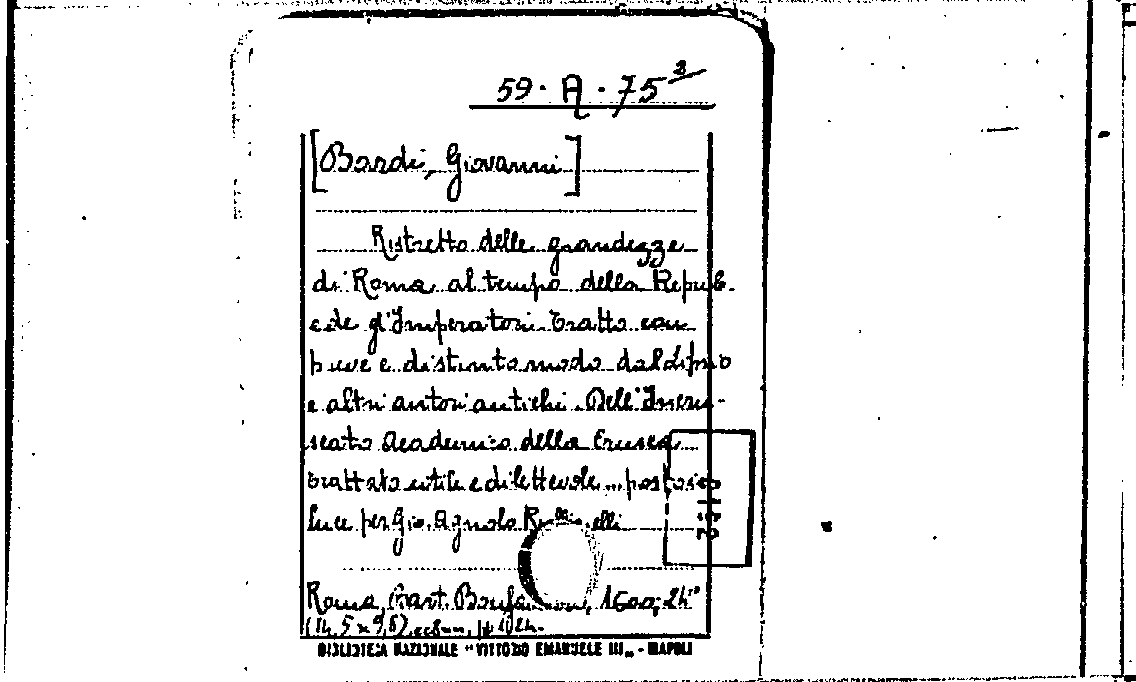 59 · A · 75
[Bardi, Giovanni]
Ristretto delle grandezze
di Roma al tempo della Repub.
e de gl'Imperatori. Tratto con
breve e distinto modo dal Lipsio
e altri antori antichi. Dell'Incru-
scato Academico della Crusca
trattato utile e dilettevole ... posto in
luce per Gio. Agnolo
Roma, Bart. 1600; 24°
(14,5 x 9,5)
BIBLIOTECA NAZIONALE "VITTORIO EMANUELE III" - NAPOLI